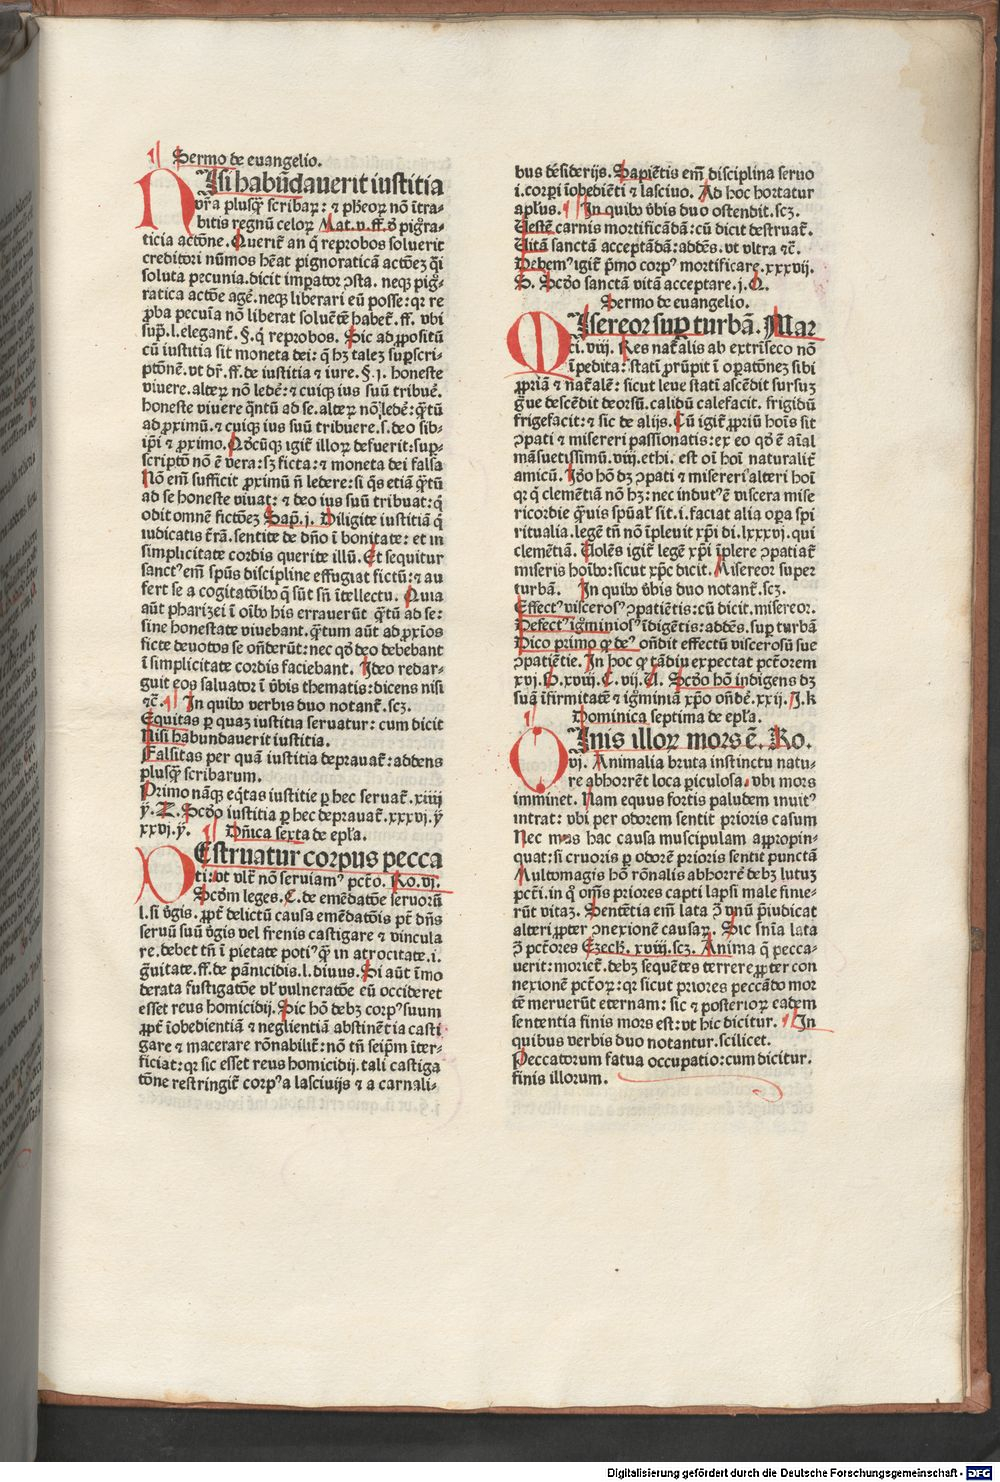 Sermo de euangelio.
NIsi habūdauerit iustitia
vr̄a plusq̄ȝ scribaꝝ: ⁊ pheoꝝ nō ītra-
bitis regnū celoꝝ Mat.v.ff.ð pigr̄a-
ticia actōne. Querit̄ an q̄ reprobos soluerit
creditori nūmos hēat pignoraticā actōeȝ q̄i
soluta pecunia.dicit impator ↄsta. neqȝ pig̅-
ratica actōe age̅.neqȝ liberari eū posse:qr re
ꝓba pecuīa nō liberat soluētē habet̄. ff. vbi
sup̄.l.elegant̄. §.q̄ reprobos. Sic ad ꝓpositū
cū iustitia sit moneta dei: q̄ hȝ taleȝ suꝑscri-
ptōnē.vt dr̄.ff.de iustitia ⁊ iure.§.j. honeste
viuere.alteꝝ nō ledē: ⁊ cuiqȝ ius suū tribuē.
honeste viuere q̄ntū ad se.alteꝝ nō ledē: q̄tū
ad ꝓximū.⁊ cuiqȝ ius suū tribuere.s.deo sib-
ip̄i ⁊ ꝓximo. Qōcūqȝ igit̄ illoꝝ defuerit:suꝑ-
scriptō nō ē vera:sȝ ficta:⁊ moneta dei falsa
Nō em̄ sufficit ꝓximū n̄ ledere:si q̄s etiā q̄tū
ad se honeste viuat: ⁊ deo ius suū tribuat:q̄
odit omnē fictōeȝ Sap̄.j. Diligite iustitiā q̄
iudicatis t̄rā.sentite de dn̄o ī bonitate: et in
simplicitate cordis querite illū. Et sequitur
sanctꝰ em̄ spūs discipline effugiat fictū:⁊ au
fert se a cogitatōibo q̄ sūt sn̄ ītellectu. Quia
aūt pharizei ī oībo his errauerūt q̄tū ad se:
sine honestate viuebant.q̄tum aūt ad ꝓxīos
ficte deuotos se on̄derūt: nec qō deo debebant
ī simplicitate cordis faciebant. Ideo redar-
guit eos saluator ī v̄bis thematis:dicens nisi
⁊c̄. In quibo verbis duo notant̄.scȝ.
Equitas ꝑ quaȝ iustitia seruatur: cum dicit
Nisi habundauerit iustitia.
Falsitas per quā iustitia deprauat̄:addens
plusq̄ȝ scribarum.
Primo nāqȝ eq̄tas iustitie ꝑ hec seruat̄.xiiij
ÿ.Z. Scd̄o iustitia ꝑ hec deprauat̄.xxxvj.ÿ
xxvj.ÿ. Dn̄ica sexta de epl̄a.
DEstruatur corpus pecca
ti:vt vlt̄ nō seruiamꝰ pctō. Ro.vj.
Scd̄m leges.C.de emēdatōe seruorū
l.si v̄gis. ꝓpt̄ delictū causa emēdatōis pt̄ dn̄s
seruū suū v̄gis vel frenis castigare ⁊ vincula
re.debet tn̄ ī pietate potiꝰ q̄ȝ in atrocitate.i.
g̅uitate.ff.de pānicidis.l.diuus. Si aūt īmo
derata fustigatōe vl̄ vulneratōe eū occideret
esset reus homicidij. Sic hō debȝ corpꝰ suum
ꝓpt̄ īobedientiā ⁊ neglientiā abstinētia casti
gare ⁊ macerare rōnabilit̄: nō tn̄ seip̄m īter-
ficiat:qr sic esset reus homicidij.tali castiga
tōne restringit̄ corpꝰ a lasciuijs ⁊ a carnali-
bus desiderijs. Sapiētis em̄ disciplina seruo
.i.corpi īobediēti ⁊ lasciuo. Ad hoc hortatur
apl̄us. In quibo v̄bis duo ostendit.scȝ.
Uestē carnis mortificādā:cū dicit destruat̄.
Uitā sanctā acceptādā:addēs.vt vltra ⁊c̄.
Debemꝰ igit̄ p̄mo corpꝰ mortificare.xxxvij.
S. Scd̄o sanctā vitā acceptare.j.Q.
Sermo de euangelio.
MIsereor suꝑ turbā. Mar
ci.viij. Res nat̄alis ab extrīseco nō
īpedita: statī prūpit ī oꝑatōneȝ sibi
ꝓpriā ⁊ nat̄alē: sicut leue statī ascēdit sursuȝ
g̅ue descēdit deorsū.calidū calefacit. frigidū
frigefacit:⁊ sic de alijs. Cū igit̄ ꝓpriū hoīs sit
ↄpati ⁊ misereri passionatis:ex eo qō ē aīal
māsuetissimū.viij.ethi. est oī hoī naturalit̄
amicū. Iō hō dȝ ↄpati ⁊ misereri alteri hoī
qr q̄ clemētiā nō hȝ:nec indutꝰ ē viscera mise
ricordie q̄uis spūal̄ sit.i.faciat alia oꝑa spi
ritualia.legē tn̄ nō īpleuit xp̄i di.lxxxvj.qui
clemētiā. Uolēs igit̄ legē xp̄i īplere ↄpatiat̄
miseris hoībo:sicut xp̄c dicit. Misereor super
turbā. In quibo v̄bis duo notant̄.scȝ.
Effectꝰ viscerosꝰ ↄpatiētis:cū dicit.misereor.
Defectꝰ ig̅miniosꝰ īdigētis:addēs.suꝑ turbā
Dico primo qr deꝰ on̄dit effectū viscerosū sue
ↄpatiētie. In hoc qr tādiu expectat pctōrem
xvj.S.xviij.C.vij.U. Scd̄o hō indigens dȝ
suā īfirmitatē ⁊ ig̅miniā xp̄o on̄dē.xxij.I.k
Dominica septima de epl̄a.
FInis illoꝝ mors ē. Ro.
vj. Animalia bruta instinctu natu-
re abhorrēt loca ꝑiculosa.vbi mors
imminet. Nam equus fortis paludem inuitꝰ
intrat: vbi per odorem sentit prioris casum
Nec mus hac causa muscipulam appropin-
quat:si cruoris ꝑ odorē prioris sentit punctā
Multomagis hō rōnalis abhorrē debȝ lutuȝ
pctī.in q̄ om̄s priores capti lapsi male finie-
rūt vitaȝ. Sentētia em̄ lata ↄ̄ vnū p̄iudicat
alteri ꝓpter ↄnexionē causaꝝ. Sic sn̄ia lata
ↄ̄ pctōres Ezech̄. xviij.scȝ. Anima q̄ pecca-
uerit:moriet̄.debȝ sequētes terrere ꝓpter con
nexionē pctōꝝ:qr sicut priores peccādo mor
tē meruerūt eternam: sic ⁊ posterioꝝ eadem
sententia finis mors est:vt hic dicitur. In
quibus verbis duo notantur.scilicet.
Peccatorum fatua occupatio:cum dicitur.
finis illorum.
Digitalisierung gefördert durch die Deutsche Forschungsgemeinschaft - DFG